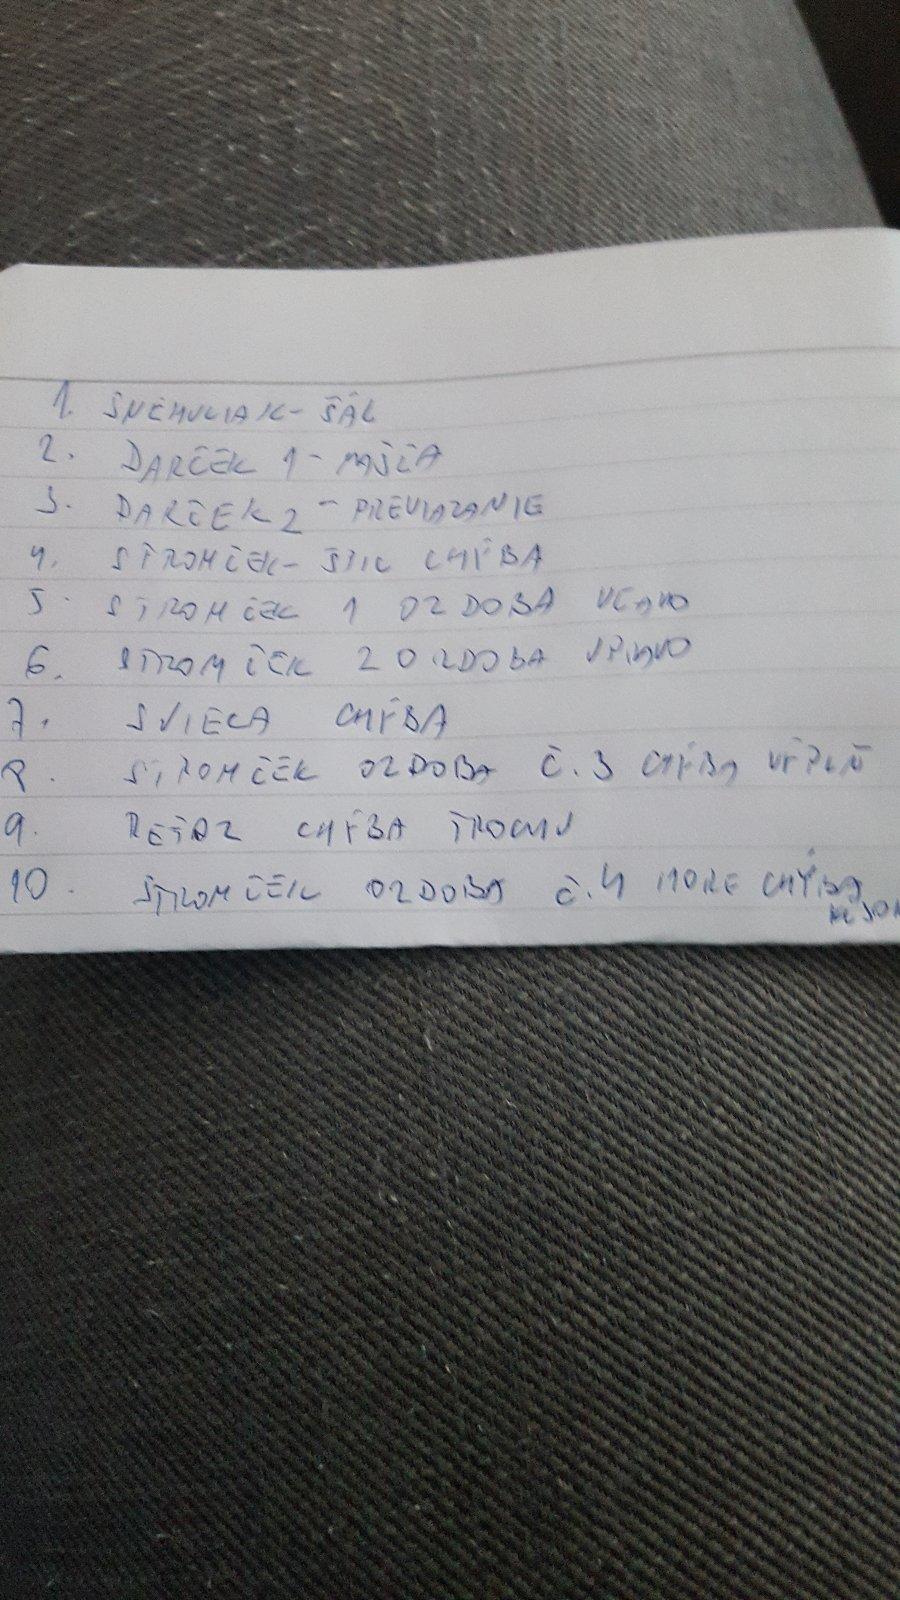 1. SNEHULIAK - ŠÁL
2. DARČEK 1 - MAŠĽA
3. DARČEK 2 - PREVIAZANIE
4. STROMČEK - ŠTIC CHÝBA
5. STROMČEK 1 OZDOBA VĽAVO
6. STROMČEK 2 OZDOBA VPRAVO
7. SVIECA CHÝBA
8. STROMČEK OZDOBA Č. 3 CHÝBA
9. REŤAZ CHÝBA TROCHU
10. STROMČEK OZDOBA Č. 4 HORE CHÝBA